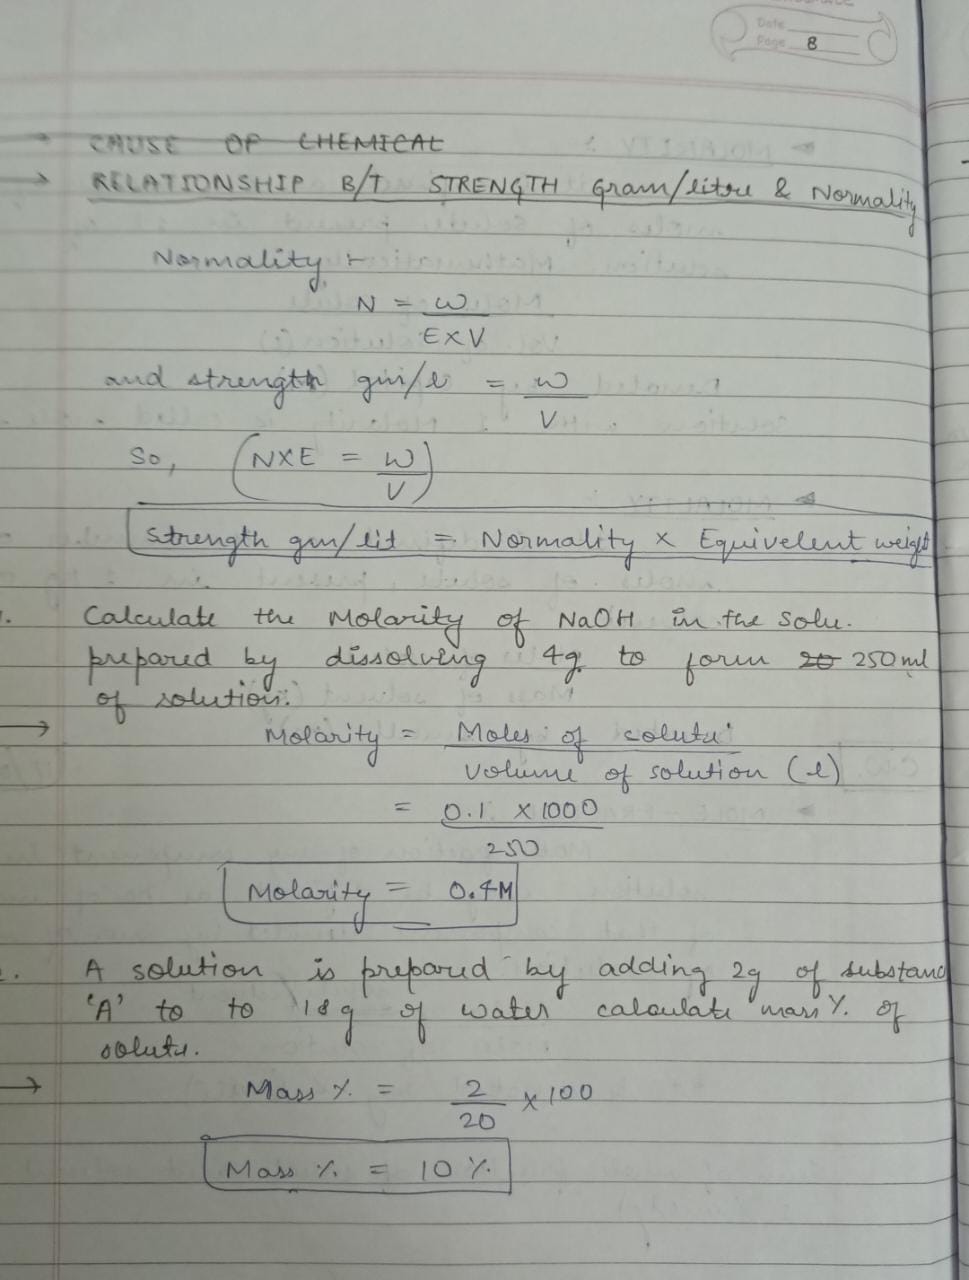 Date
Page 8
→ CAUSE OF CHEMICAL
→ RELATIONSHIP B/T STRENGTH Gram/litre & Normality
Normality :-
N = w
E×V
and strength gm/l = w
V
So, (N×E = w
V)
Strength gm/lit = Normality × Equivelent weight
Calculate the Molarity of NaOH in the Solu.
prepared by dissolving 4g to form 20 250 ml
of solution.
→ Molarity = Moles of solute
Volume of solution (l)
= 0.1 × 1000
250
Molarity = 0.4M
A solution is prepared by adding 2g of substanc
'A' to to 18g of water calculate mass % of
solute.
→ Mass % = 2 × 100
20
Mass % = 10 %